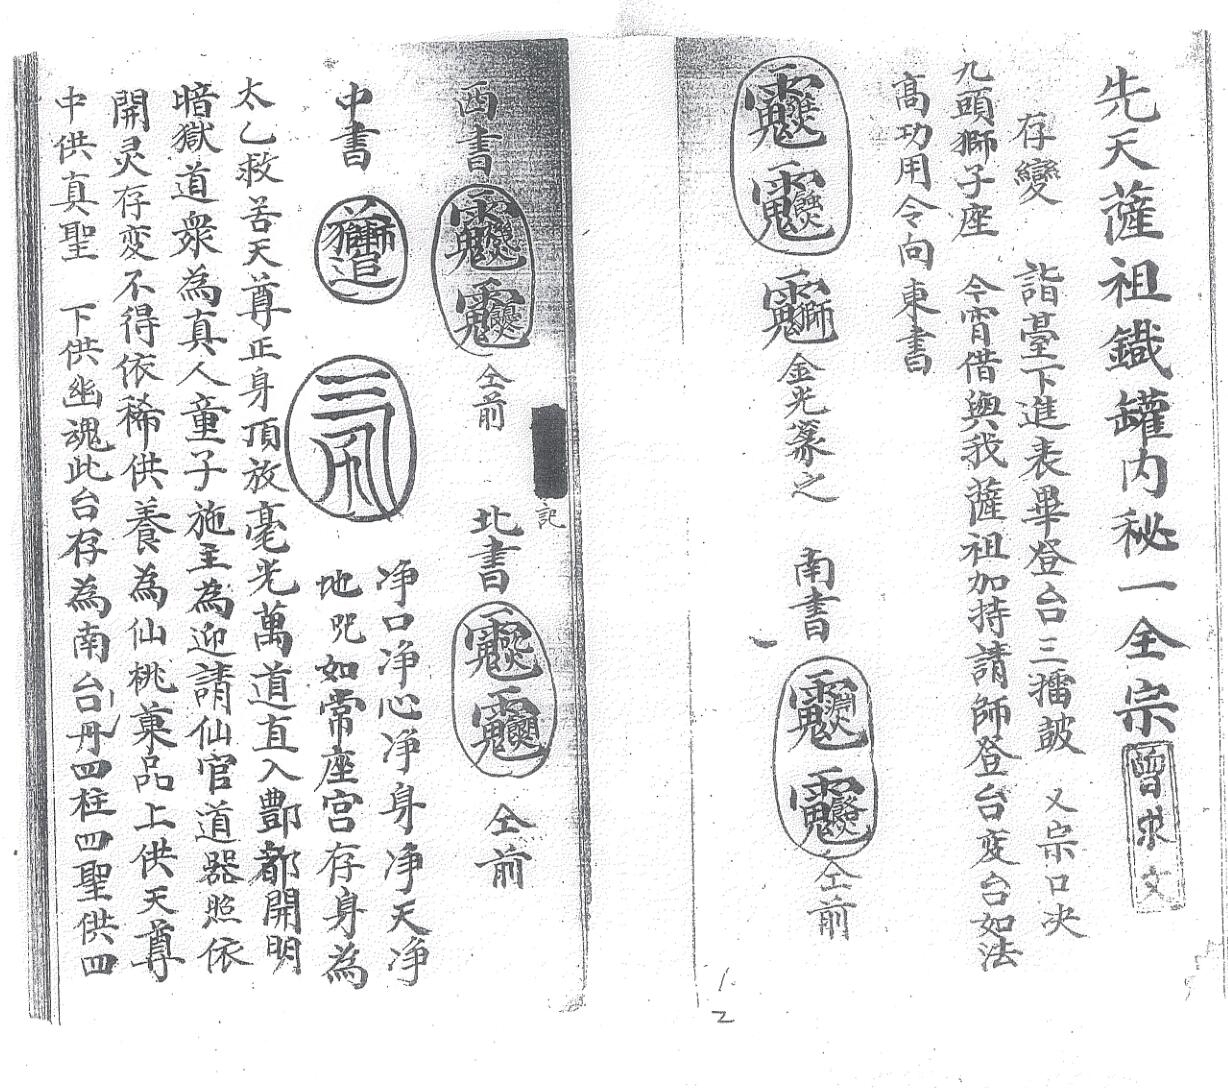 先天薩祖鐵罐內秘一全宗 曾求文
存變 詣臺下進表畢登台三擂鼓 又宗口决
九頭獅子座 今宵借與我薩祖加持請師登台变台如法
高功用令向東書
金光篆之 南書 仝前
西書 仝前 北書 仝前
記
中書 净口净心净身净天净
地咒如常座宮存身為
太乙救苦天尊正身頂放毫光萬道直入酆都開明
暗獄道衆為真人童子施主為迎請仙官道器照依
開灵存变不得依稀供養為仙桃菓品上供天尊
中供真聖 下供幽魂此台存為南台丹四柱四聖供四
1.
2